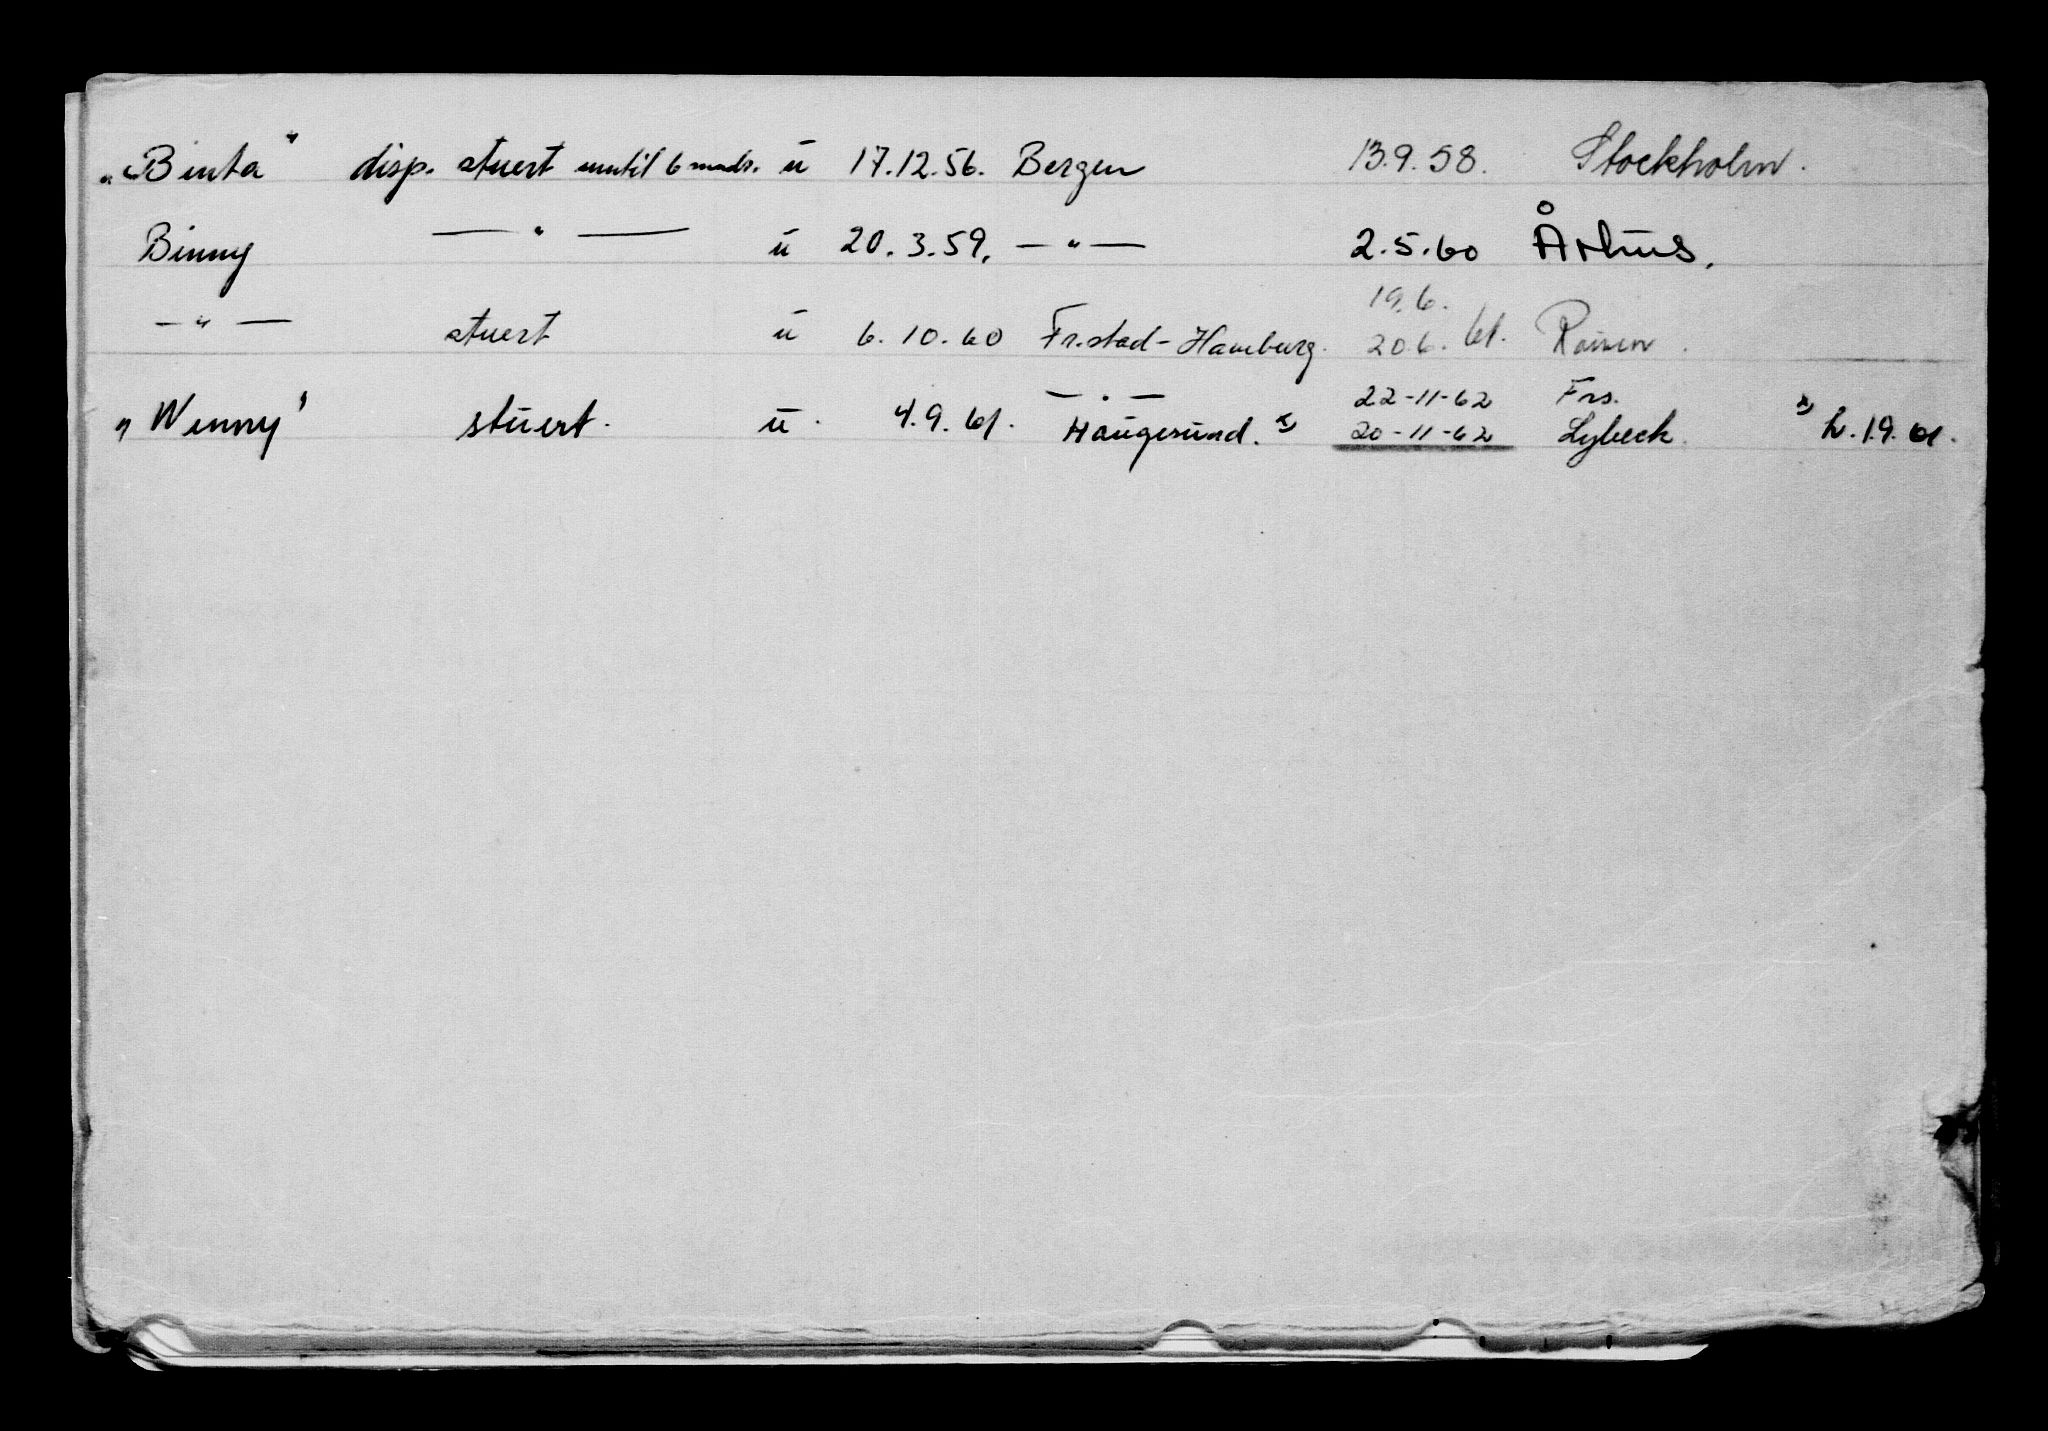 „Binta" disp. stuert inntil 6 mndr. u 17.12.56. Bergen 13.9.58. Stockholm.
Binny — " — u 20.3.59. — " — 2.5.60 Århus.
19.6.
— " — stuert u 6.10.60 Fr.stad - Hamburg. 20.6. 61.
— " — 22-11-62 Frs.
„Wenny" stuert. u. 4.9.61. Haugesund. x) 20-11-62 Lybeck x) h.1.9.61.